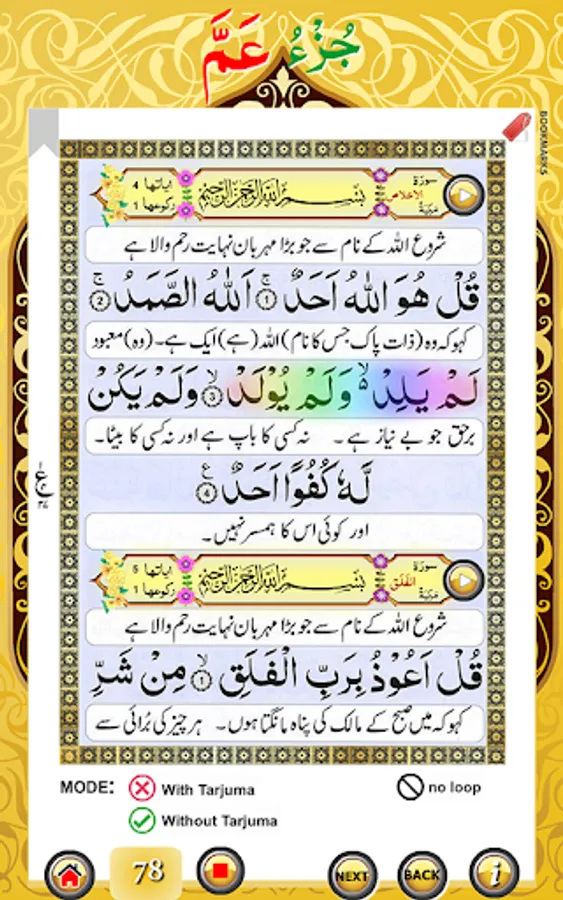 جُزْءُ عَمَّ
BOOKMARKS
سورة الاخلاص مكية
بِسْمِ اللّٰهِ الرَّحْمٰنِ الرَّحِيْمِ
اٰياتها 4
ركوعها 1
شروع اللہ کے نام سے جو بڑا مہربان نہایت رحم والا ہے
قُلْ هُوَ اللّٰهُ اَحَدٌ ۚ ① اَللّٰهُ الصَّمَدُ ۚ ②
کہو کہ وہ (ذات پاک جس کا نام) اللہ (ہے) ایک ہے۔ (وہ) معبود
لَمْ يَلِدْ ۙ وَلَمْ يُوْلَدْ ۙ ③ وَلَمْ يَكُنْ
برحق جو بے نیاز ہے۔ نہ کسی کا باپ ہے اور نہ کسی کا بیٹا۔
لَّهٗ كُفُوًا اَحَدٌ ۧ ④
اور کوئی اس کا ہمسر نہیں۔
سورة الفلق مكية
بِسْمِ اللّٰهِ الرَّحْمٰنِ الرَّحِيْمِ
اٰياتها 5
ركوعها 1
شروع اللہ کے نام سے جو بڑا مہربان نہایت رحم والا ہے
قُلْ اَعُوْذُ بِرَبِّ الْفَلَقِ ۙ ① مِنْ شَرِّ
کہو کہ میں صبح کے مالک کی پناہ مانگتا ہوں۔ ہر چیز کی بُرائی سے
MODE: With Tarjuma
Without Tarjuma
no loop
78
NEXT
BACK
i